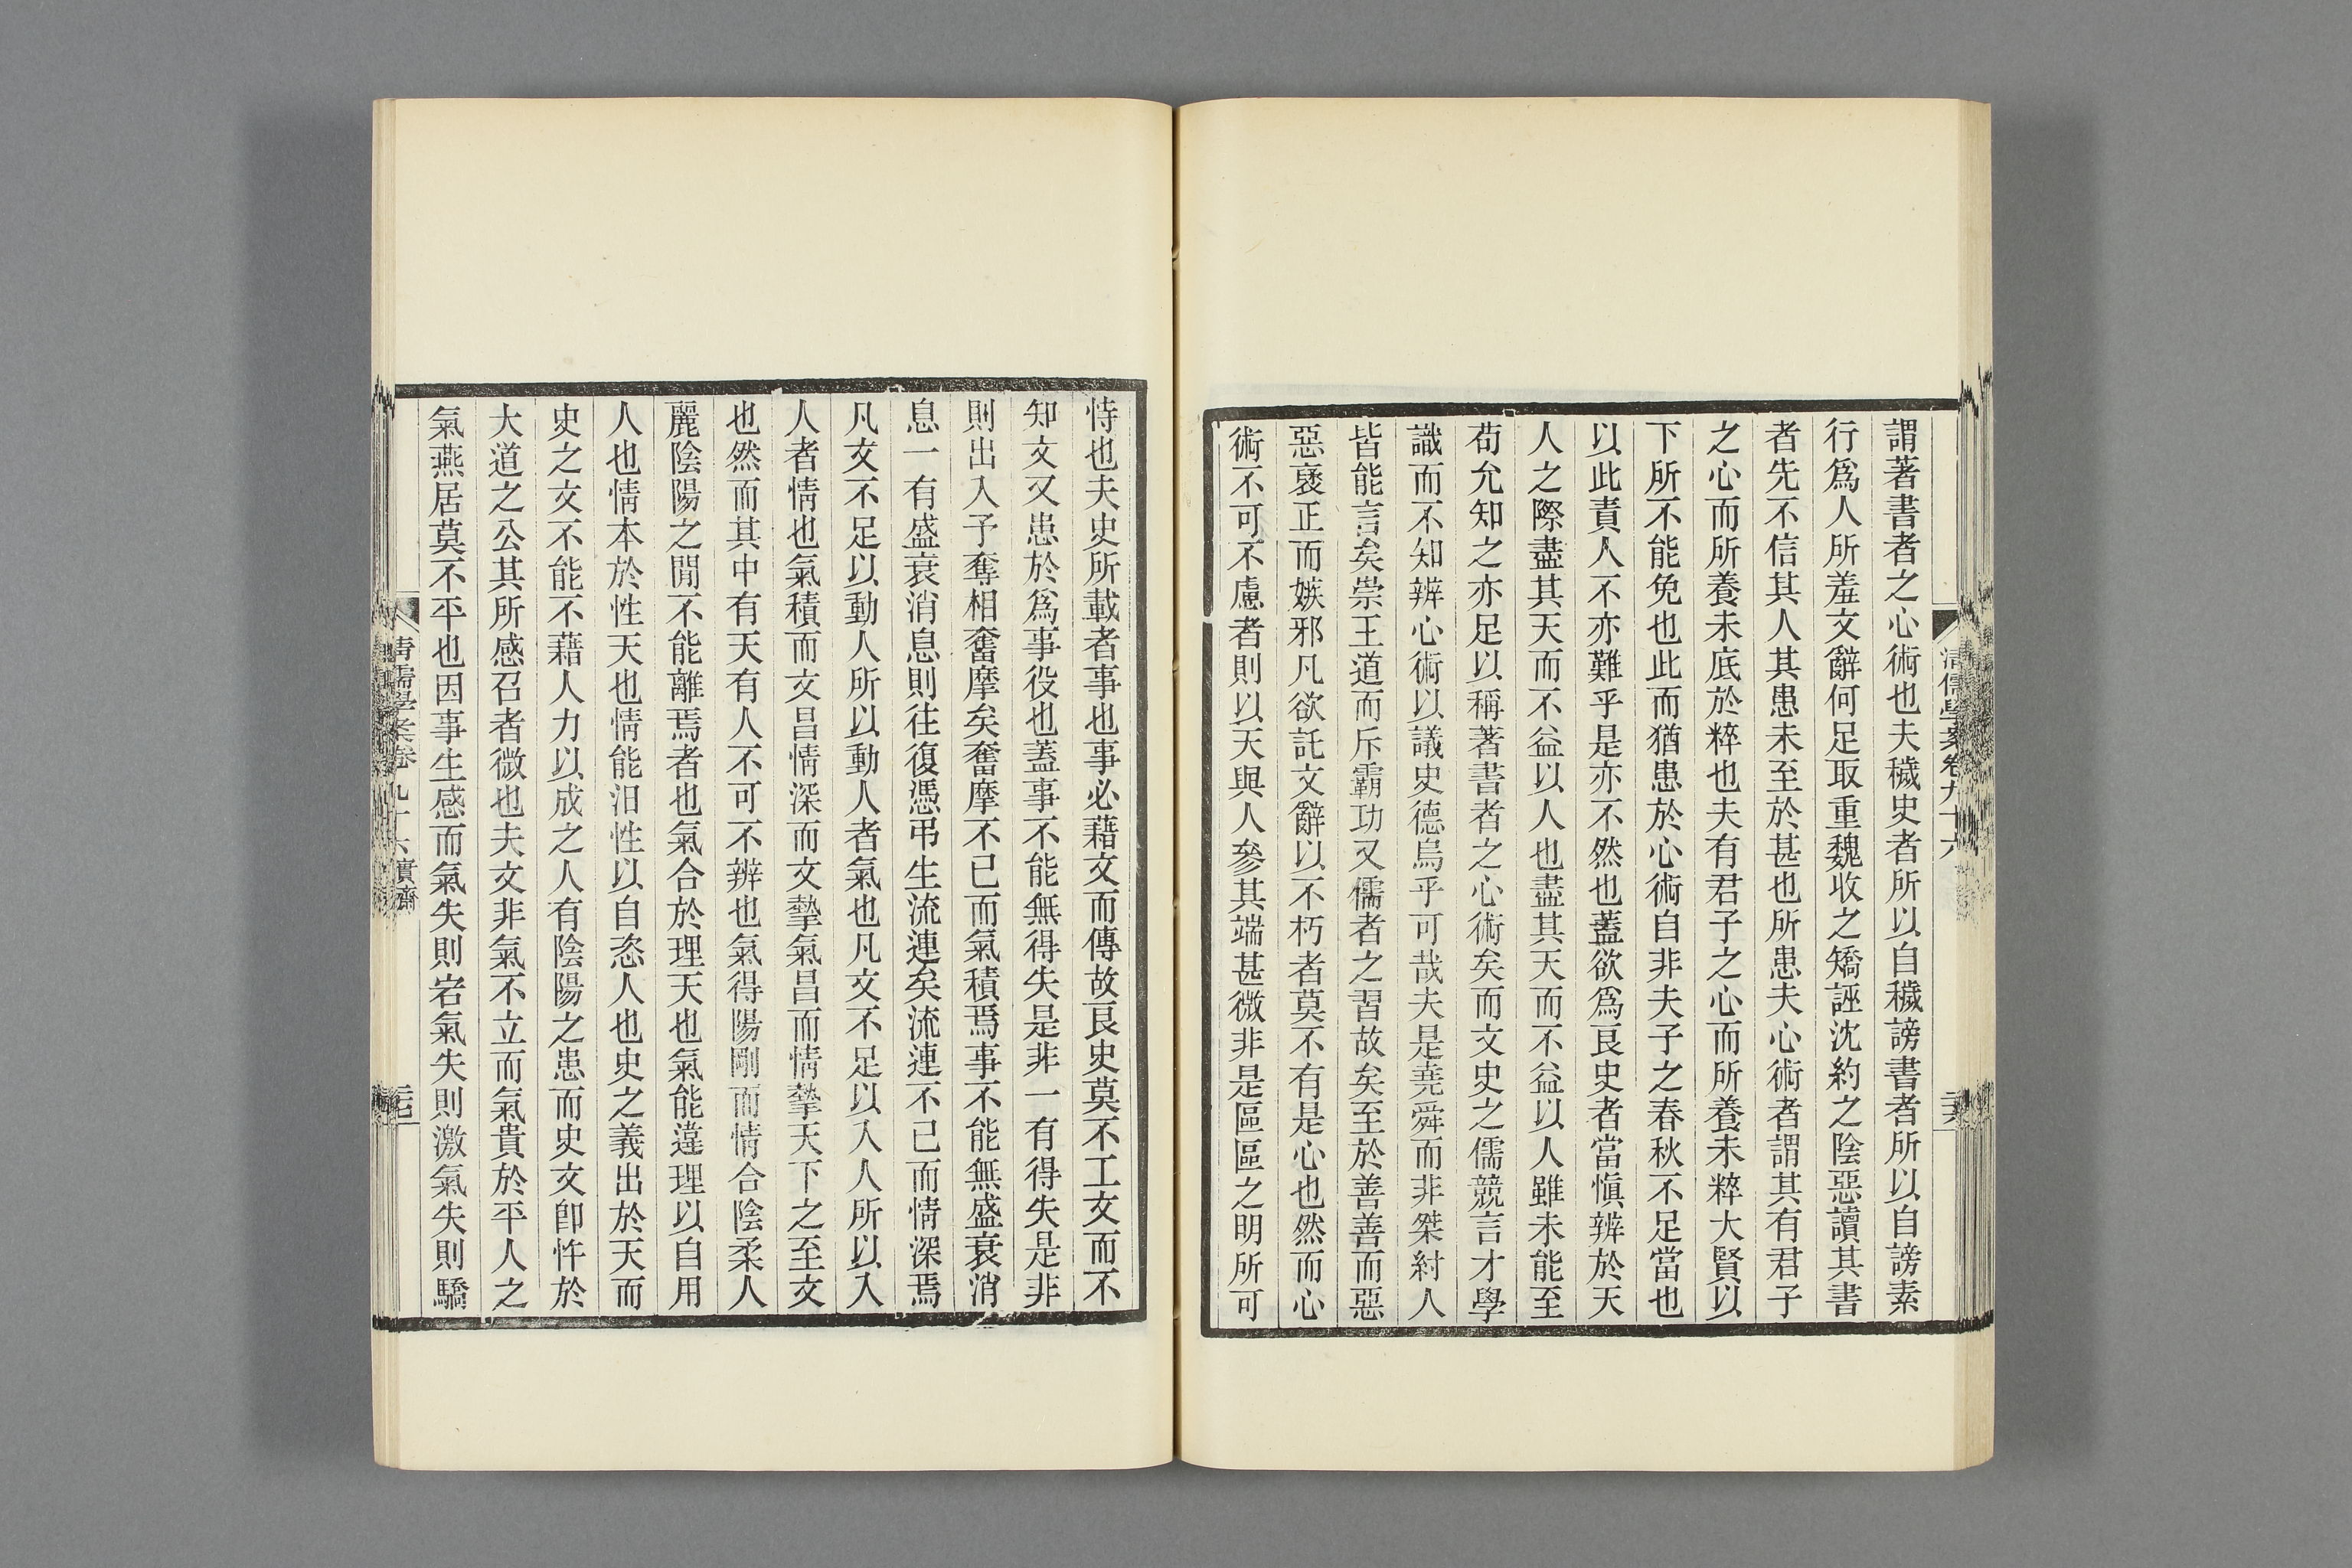 清儒學案卷九十六
二六
謂著書者之心術也夫穢史者所以自穢謗書者所以自謗素
行爲人所羞文辭何足取重魏收之矯誣沈約之陰惡讀其書
者先不信其人其患未至於甚也所患夫心術者謂其有君子
之心而所養未底於粹也夫有君子之心而所養未粹大賢以
下所不能免也此而猶患於心術自非夫子之春秋不足當也
以此責人不亦難乎是亦不然也蓋欲爲良史者當愼辨於天
人之際盡其天而不益以人也盡其天而不益以人雖未能至
苟允知之亦足以稱著書者之心術矣而文史之儒競言才學
識而不知辨心術以議史德烏乎可哉夫是堯舜而非桀紂人
皆能言矣崇王道而斥霸功又儒者之習故矣至於善善而惡
惡褒正而嫉邪凡欲託文辭以不朽者莫不有是心也然而心
術不可不慮者則以天與人參其端甚微非是區區之明所可
恃也夫史所載者事也事必藉文而傳故良史莫不工文而不
知文又患於爲事役也蓋事不能無得失是非一有得失是非
則出入予奪相奮摩矣奮摩不已而氣積焉事不能無盛衰消
息一有盛衰消息則往復憑弔生流連矣流連不已而情深焉
凡文不足以動人所以動人者氣也凡文不足以入人所以入
人者情也氣積而文昌情深而文摯氣昌而情摯天下之至文
也然而其中有天有人不可不辨也氣得陽剛而情合陰柔人
麗陰陽之閒不能離焉者也氣合於理天也氣能違理以自用
人也情本於性天也情能汩性以自恣人也史之義出於天而
史之文不能不藉人力以成之人有陰陽之患而史文卽忤於
大道之公其所感召者微也夫文非氣不立而氣貴於平人之
氣燕居莫不平也因事生感而氣失則宕氣失則激氣失則驕
清儒學案卷九十六 實齋
二七